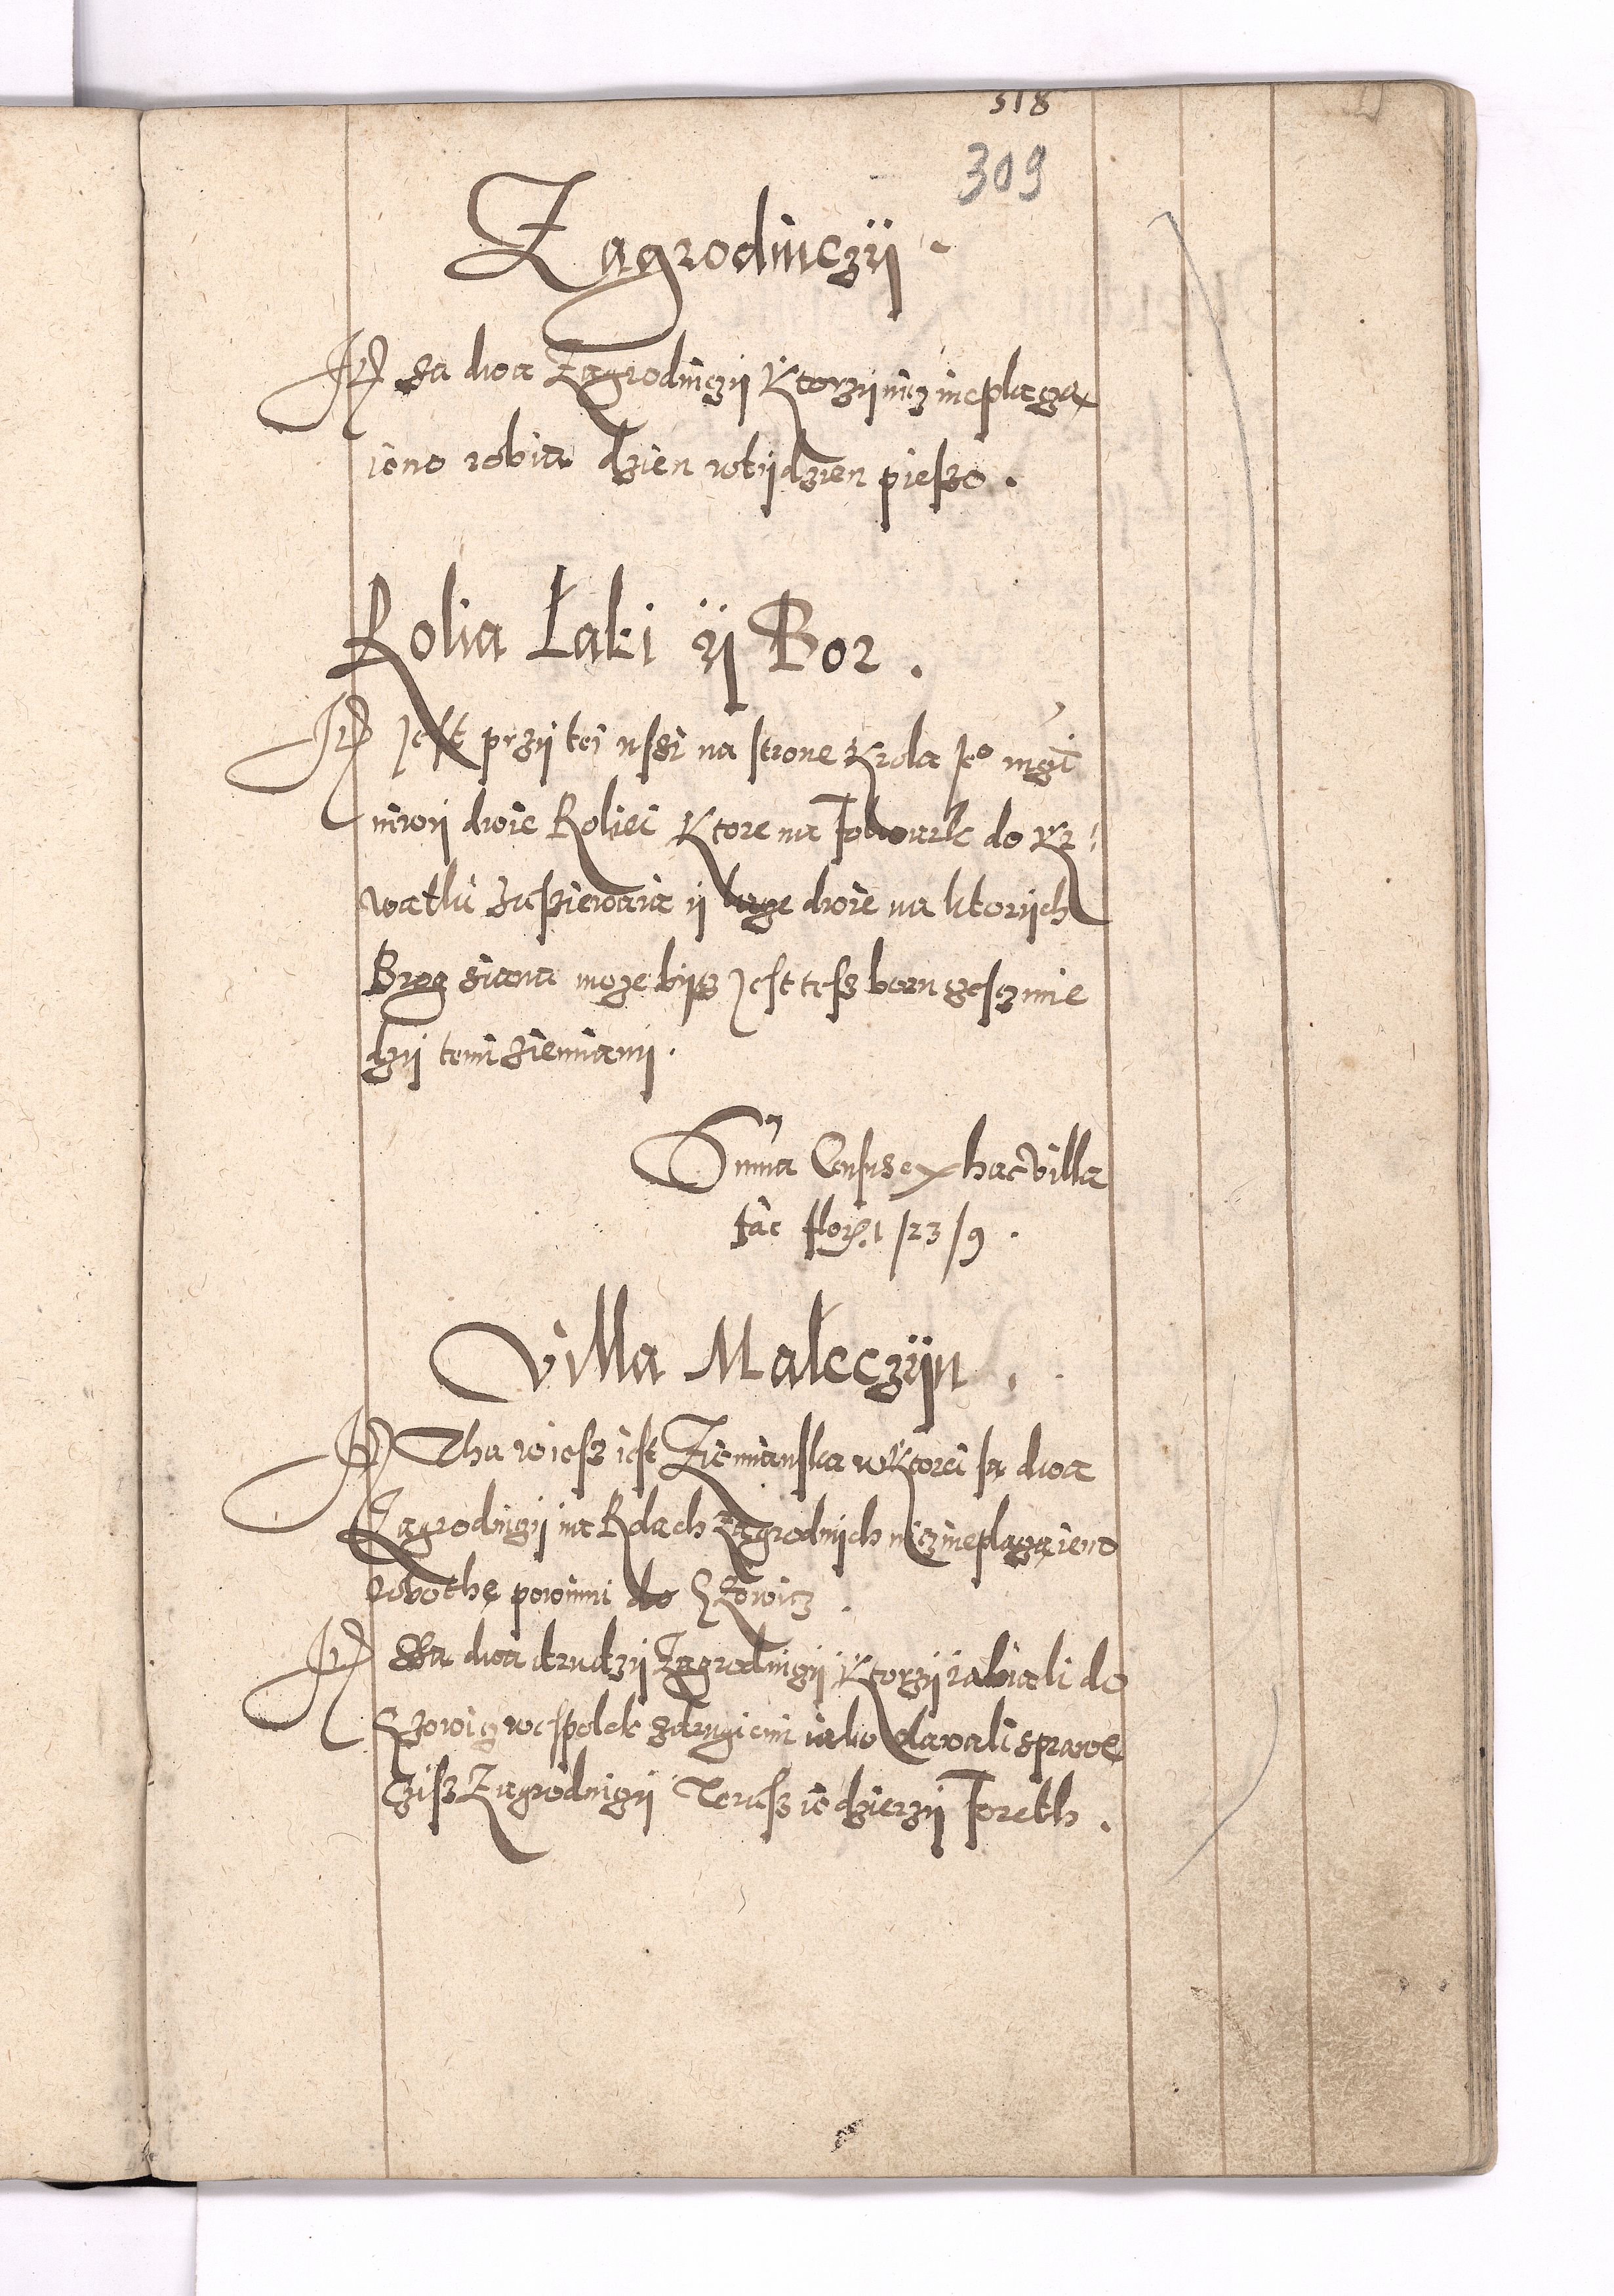 518
309
Zagrodniczÿ
Itẽ Sa dwa Zagrodniczÿ Ktorzÿ nicz nieplacza
ieno robia dzien wtÿdzien pieszo.
Rolia Łaki ÿ Bor.
Itẽ Jest przÿ tei wsi na strone Krola Jeo
niwÿ dwie Roliei Ktore na Folwark do
zasiewaia ÿ dwie na ktorÿch
Brog siana moze bÿcz Jest tesz born mie
dzÿ temi ziemianÿ.
Suma Census ex hac villa
fac flor. 1/23/9.
Villa Małeczÿn.
Itẽ Tha wiesz iest Ziemianska wktorei sa dwa
Zagrodniczÿ na Rolach Zagrodnich nicz nieplacza ieno
robothe powinni do
Itẽ Sa dwa drudzÿ Zagrodniczÿ Ktorzÿ rabiali do
wespolek zdrugiemi iako dawali sprawe
cisz Zagrodniczÿ Terasz ie dzierzÿ Foreth.